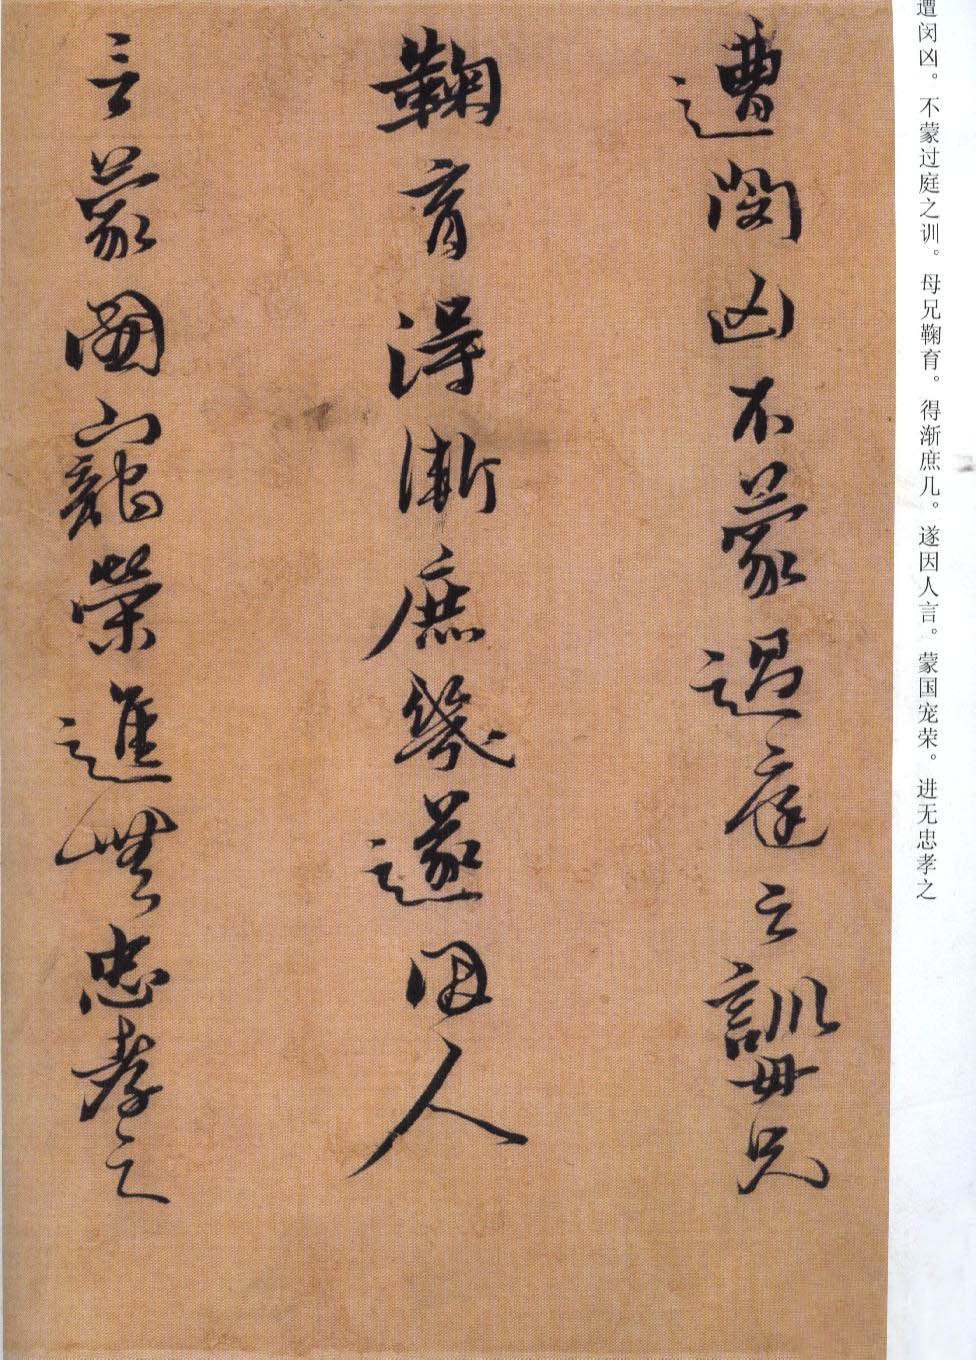 遭闵凶。不蒙过庭之训。母兄鞠育。得渐庶几。遂因人言。蒙国宠荣。进无忠孝之
遭閔凶不蒙過庭之訓母兄
鞠育得漸庶幾遂因人
言蒙國寵榮進無忠孝之